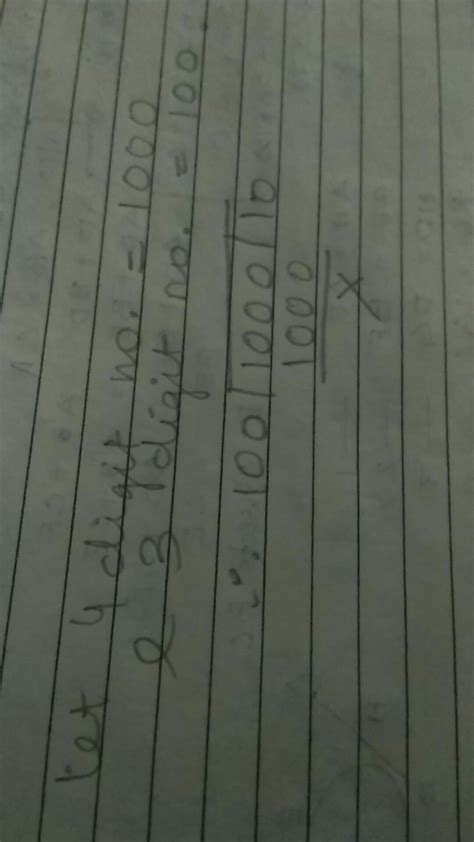 let 4 digit no. = 1000
& 3 digit no. = 100.
∴ 100/1000/10
1000
X